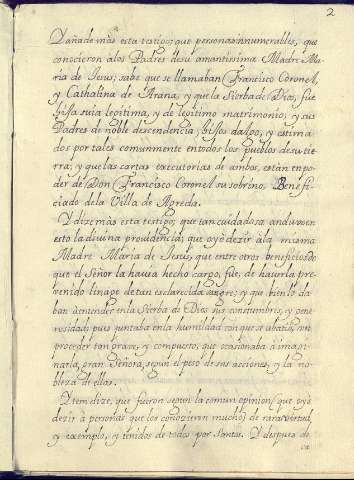 2
Dañade mas esta testigo; que personas innumerables, que
conocieron alos Padres desu amantissima Madre Ma-
ria de Jesus; sabe que se llamaban Francisco Coronel,
y Cathalina de Arana, y que la Sierba de Dios, fue
hija suia legitima, y de legitimo matrimonio, y sus
Padres de noble descendencia, hijos dalgo, y estima-
dos por tales comunmente entodos los pueblos desu tie-
rra; y que las cartas executorias de ambos, estàn en po-
der de Don Francisco Coronel su sobrino, Benefi-
ciado dela Villa de Agreda.
Y dize màs esta testigo, que tan cuidadosa anduvo en
esto la divina providencia; que oyò dezir à la misma
Madre Maria de Jesus, que entre otros beneficios de
que el Señor la havia hecho cargo, fue, de haverla pre-
venido linage de tan esclarecida sangre; y que bien lo da-
ban à entender en la Sierba de Dios sus constumbres, y gene-
rosidad; pues juntaba en la humildad con que se abatia, un
proceder tan grave, y compuesto, que ocasionaba à imagi-
narla, gran Señora, segun el peso de sus acciones, y la no-
bleza de ellas.
Ytem dize, que fueron segun la comun opinion, que oyò
dezir à personas que los conozieron mucho; de rara virtud,
y exemplo, y tenidos de todos por Santos. Y despues de